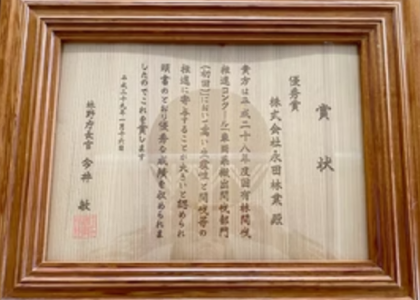 賞状
優秀賞
株式会社永田林業 殿
貴方は平成二十八年度国有林間伐
推進コンクール「車両系搬出間伐部門
(初回)」において高い生産性と間伐等の
推進に寄与することが大きいと認められ
頭書のとおり優秀な成績を収められま
したのでこれを賞します
平成二十九年一月十六日
林野庁長官 今井 敏